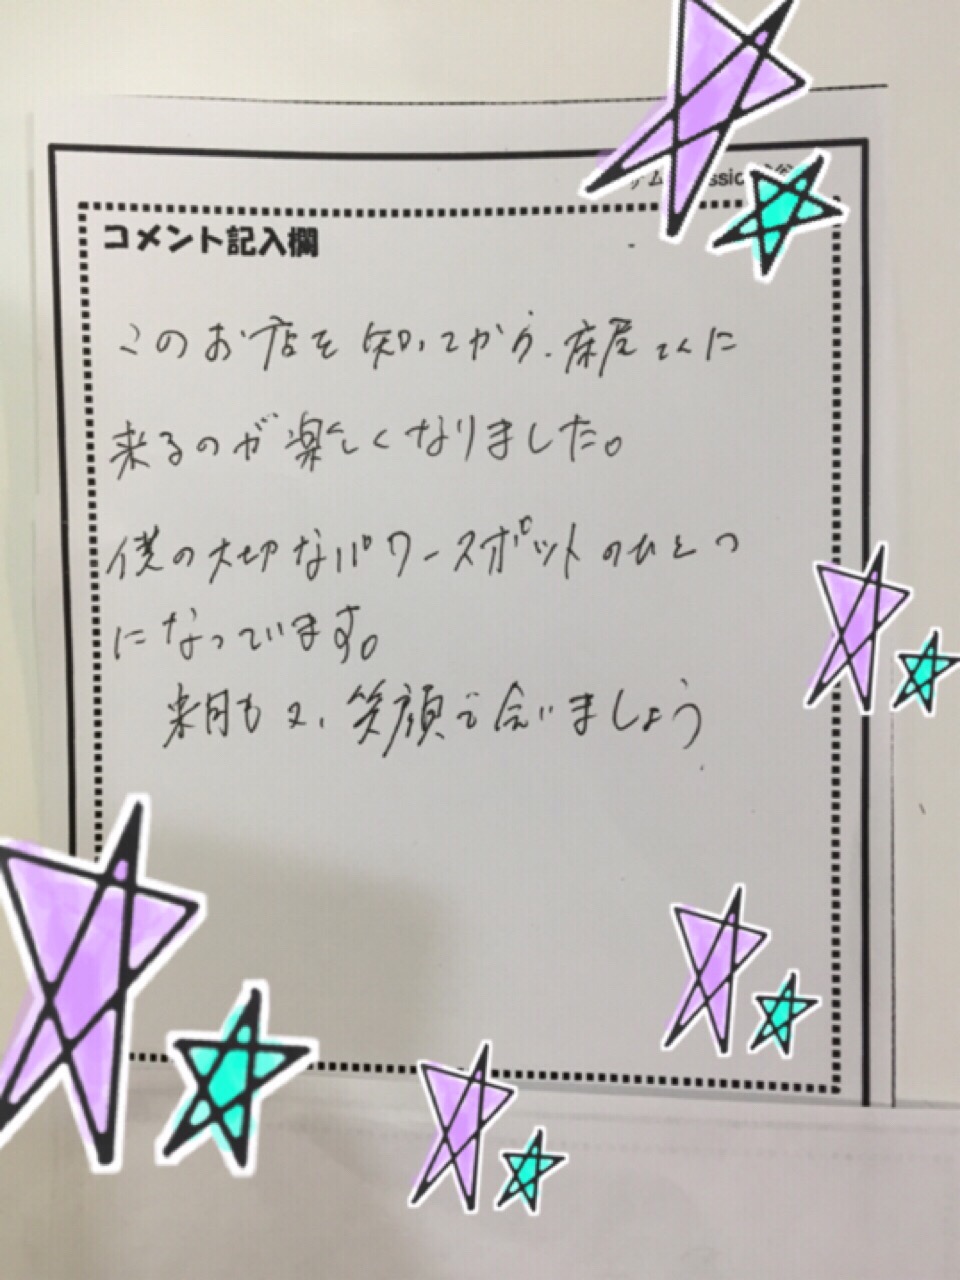 コメント記入欄
このお店を知ってから、床屋さんに
来るのが楽しくなりました。
僕の大切なパワースポットのひとつ
になっています。
来月も又、笑顔で会いましょう